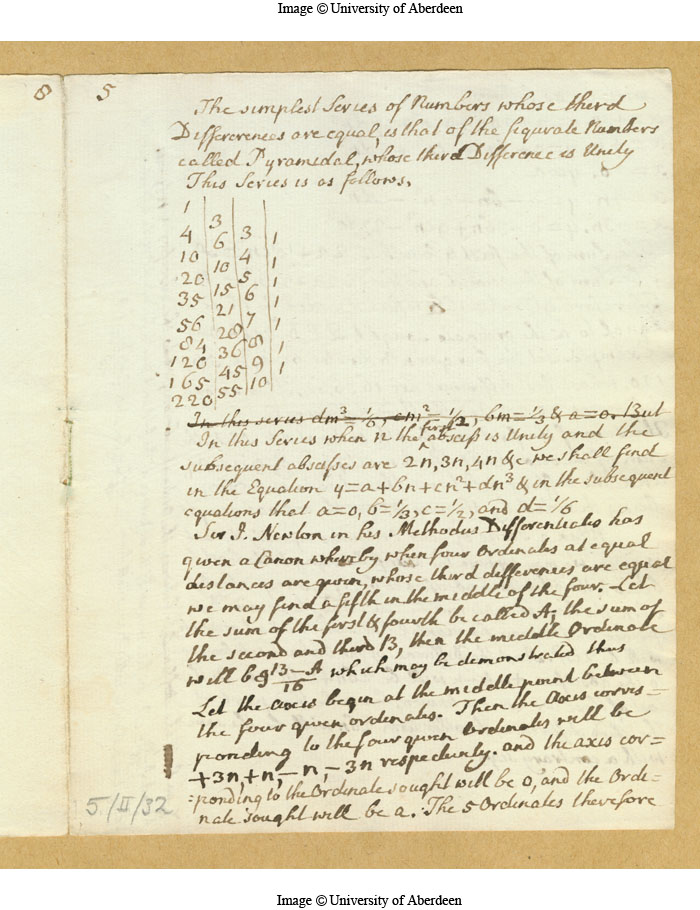 Image © University of Aberdeen
8
5
The simplest Series of Numbers whose therd
Differerences are equal, is that of the figurate Numbers
called Pyramidal, whose third Difference is Unity
This Series is as follows,
1
3
4 3
6 1
10 4
10 1
20 5
15 1
35 6
21 1
56 7
28 1
84 8
36 1
120 9
45 1
165 10
55
220
In this series dm³=1/6, cm²=1/2, bm=1/3 & a=0. But
first
In this Series when n the absciss is Unity and the
subsequent abscisses are 2n, 3n, 4n &c we shall find
in the Equation y=a+bn+cn²+dn³ & in the subsequent
equations that a=0, b=1/3, c=1/2, and d=1/6
Sir I. Newton in his Methodus Differentialis has
given a Canon whereby when four Ordinates at equal
distances are given, whose third differences are equal
we may find a fifth in the middle of the four. Let
the sum of the first & fourth be called A, the sum of
the second and third B, then the middle Ordinate
will be 9B-A/16 which may be demonstrated thus
Let the axis begin at the middle point between
the four given ordinates. Then the Axis corres=
ponding to the four given Ordinates will be
+3n, +n, -n, -3n respectively. and the axis cor=
=ponding to the Ordinate sought will be 0, and the Ordi=
nate sought will be a. The 5 Ordinates therefore
5/II/32
Image © University of Aberdeen